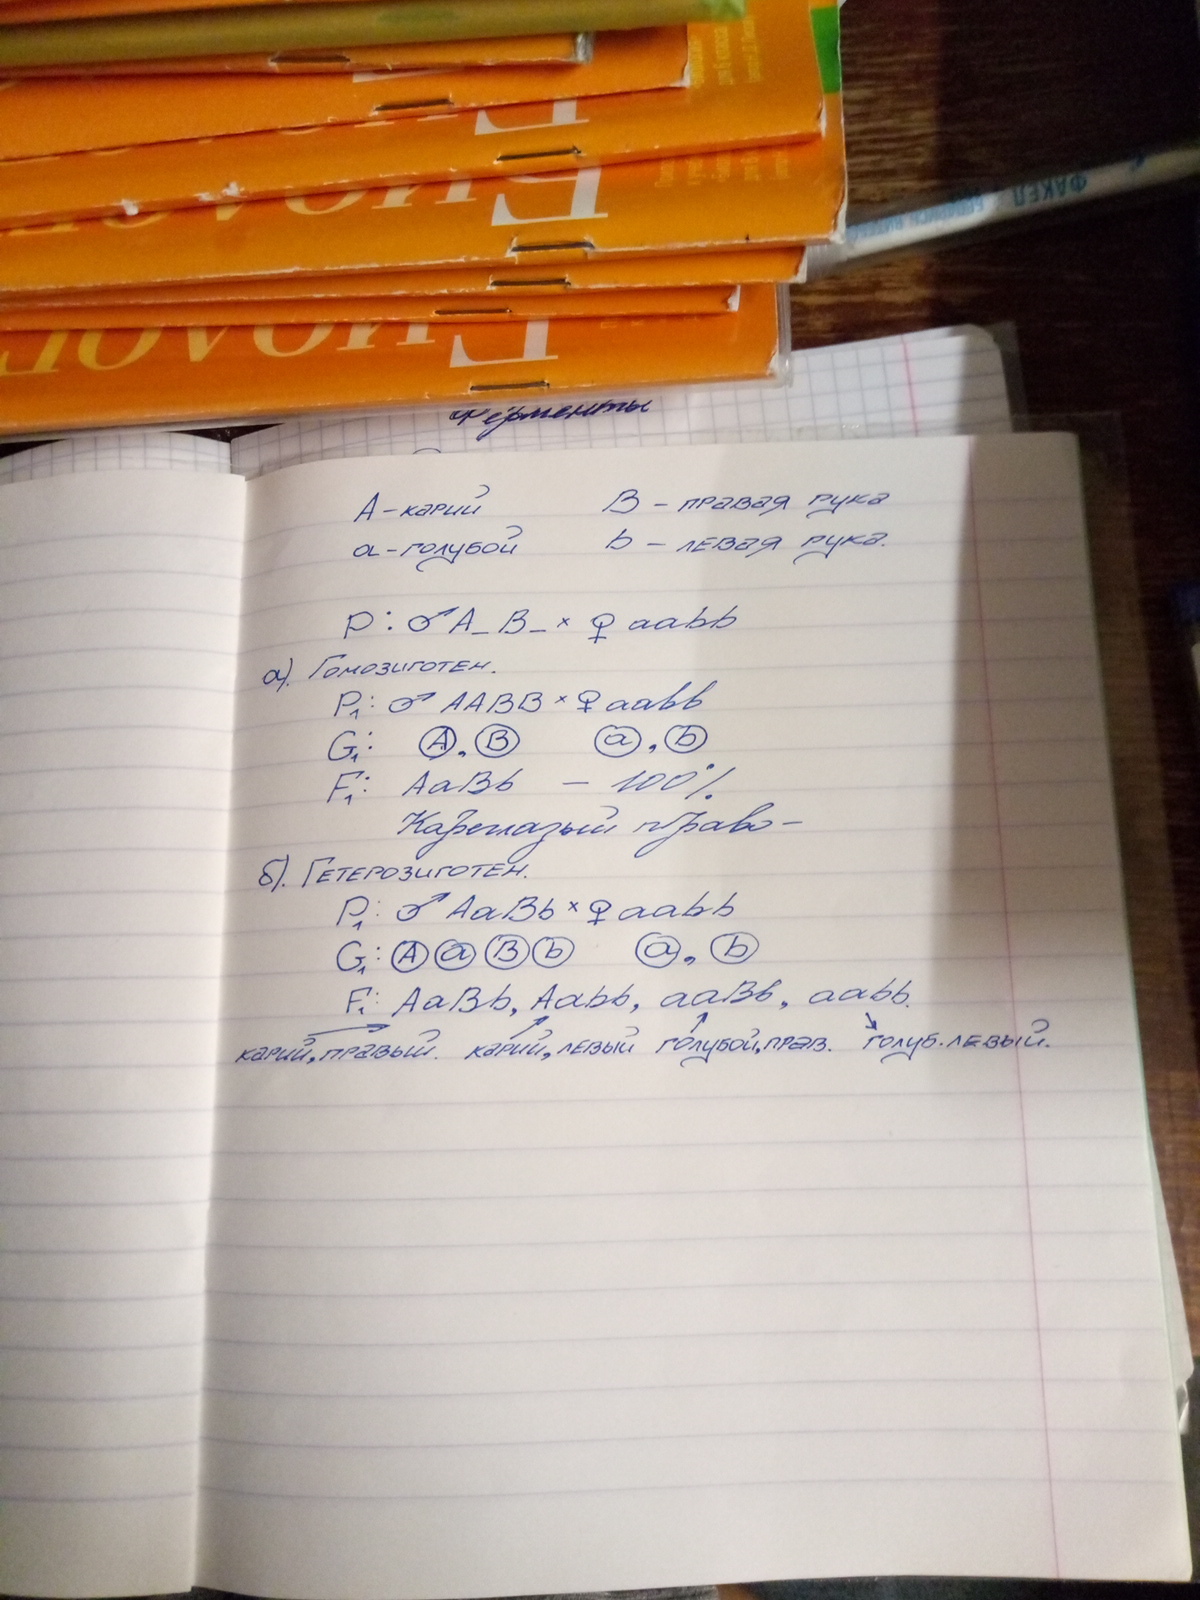 ФАКЕЛ
Биолог
Ферменты
А - карий В - правая рука
а - голубой b - левая рука.
P: ♂ A_ B_ × ♀ aabb
а). Гомозиготен.
P₁: ♂ AABB × ♀ aabb
G₁: Ⓐ, Ⓑ ⓐ, ⓑ
F₁: AaBb - 100%
Кареглазый право-
б). Гетерозиготен.
P₁: ♂ AaBb × ♀ aabb
G₁: Ⓐ ⓐ Ⓑ ⓑ ⓐ, ⓑ
F₁: AaBb, Aabb, aaBb, aabb.
карий, правый. карий, левый голубой, прав. голуб. левый.